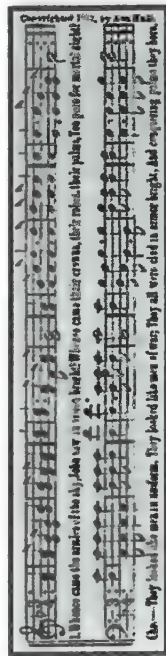 Copyright 1912, by
1. Whence came the armies of the sky, John saw in vision bright? Whence came their crowns, their robes, their palms, Too pure for mortal sight?
Cho.—They looked like men in uniform, They looked like men of war; They all were clad in armor bright, And conquering palms they bore.